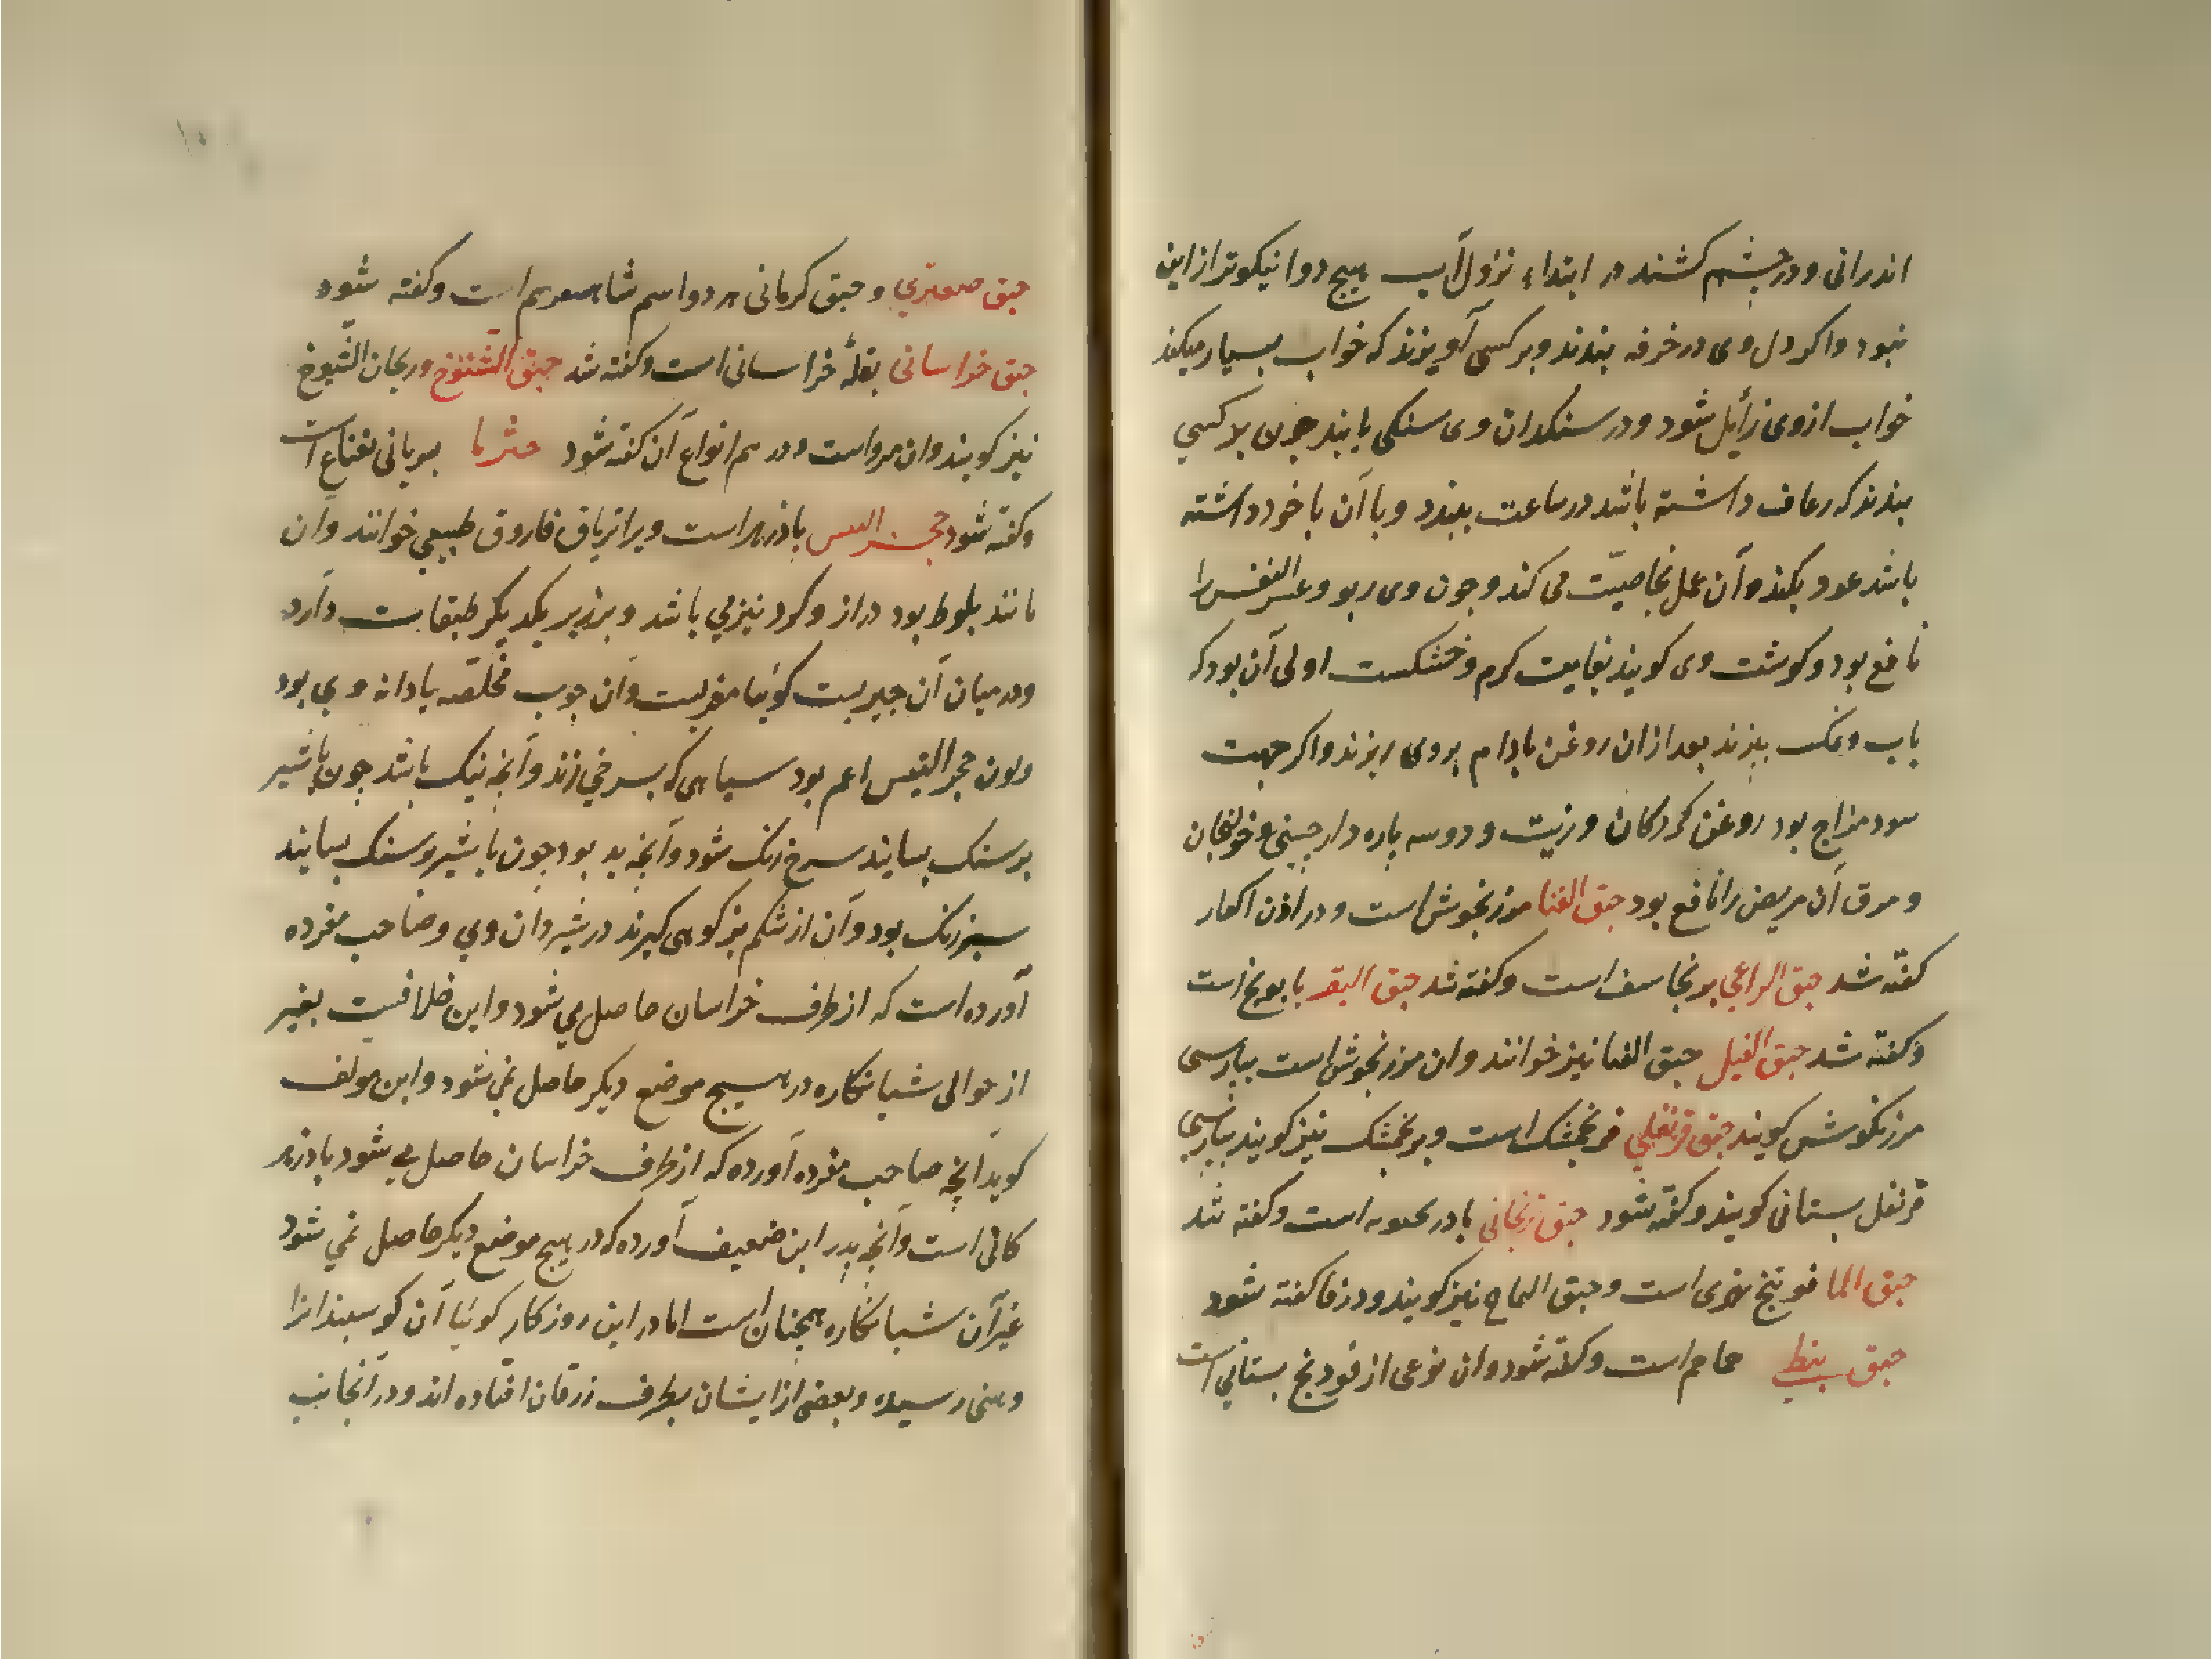 اندرانی و در چشم کشند در ابتداء نزول آب هیچ دوا نیکوتر از این
نبود و اکر دل وی در خرقه بندند و بر کسی آویزند که خواب بسیار میکند
خواب ازوی زائل شود و در سنکدان وی سنکی یابند چون بر کسی
بندند که رعاف داشته باشد در ساعت ببندد و با آن با خود داشته
باشد عود بکند و آن عمل بخاصیّت می کند و چون وی ربو و عسر النفس را
نافع بود و کوشت وی کویند بغایت کرم و خشکست اولی آن بود که
باب و نمک بپزند بعد از ان روغن بادام بر وی ریزند و اکر جهت
سرد مزاج بود روغن کردکان و زیت و دو سه پاره دارچینی و خولنجان
و مرق آن مریض را نافع بود حبق الفتا مرزنجوش است و در اذن الفار
کفته شد حبق الراعی برنجاسف است و کفته شد حبق البقر بابونج است
و کفته شد حبق الفیل حبق الفتا نیز خوانند و ان مرزنجوش است بپارسی
مرزنکوش کویند حبق قرنفلی فرنجمشک است و برنجمشک نیز کویند بپارسی
قرنفل بستانی کویند و کفته شود حبق ترنجانی بادرنجبویه است و کفته شد
حبق الما فوتنج نهری است و حبق التماح نیز کویند و در فا کفته شود
حبق نبطی حماحم است و کفته شود و ان نوعی از فودنج بستانی است
حبق صعتری و حبق کرمانی هر دو اسم شاهسفرهم است و کفته شود
حبق خراسانی بقلهٔ خراسانی است و کفته شد حبق الشیوخ و ریحان الشیوخ
نیز کویند و ان مرو است و در میم انواع آن کفته شود حثرما بسریانی نعناع است
و کفته شود حجر التیس باذزهر است و یرا تریاق فاروق طبیعی خوانند و آن
مانند بلوط بود دراز و کرد نیز می باشد و بر زبر یکدیکر طبقات دارد
و در میان آن چیزیست کوئیا مغزیست و آن چوب مخلّصه یا دانه وی بود
و لون حجر التیس اعم بود سیاهی که بسرخی زند و آنچه نیک باشد چون با شیر
بر سنک بسایند سرخ رنک شود و آنچه بد بود چون با شیر بر سنک بسایند
سبز رنک بود و آن از شکم بز کوهی کیرند در شیردان وی و صاحب مفرده
آورده است که از طرف خراسان حاصل می شود و این خلافست بغیر
از حوالی شبانکاره در هیچ موضع دیکر حاصل نمی شود و این مولف
کوید آنچه صاحب مفرده آورده که از طرف خراسان حاصل می شود پادزهر
کانی است و آنچه پدر این ضعیف آورده که در هیچ موضع دیکر حاصل نمی شود
غیر آن شبانکاره همچنان است اما در این روزکار کوئیا آن کوسبندانرا
وهنی رسیده و بعضی از ایشان بطرف زرقان افتاده اند و در آنجانب